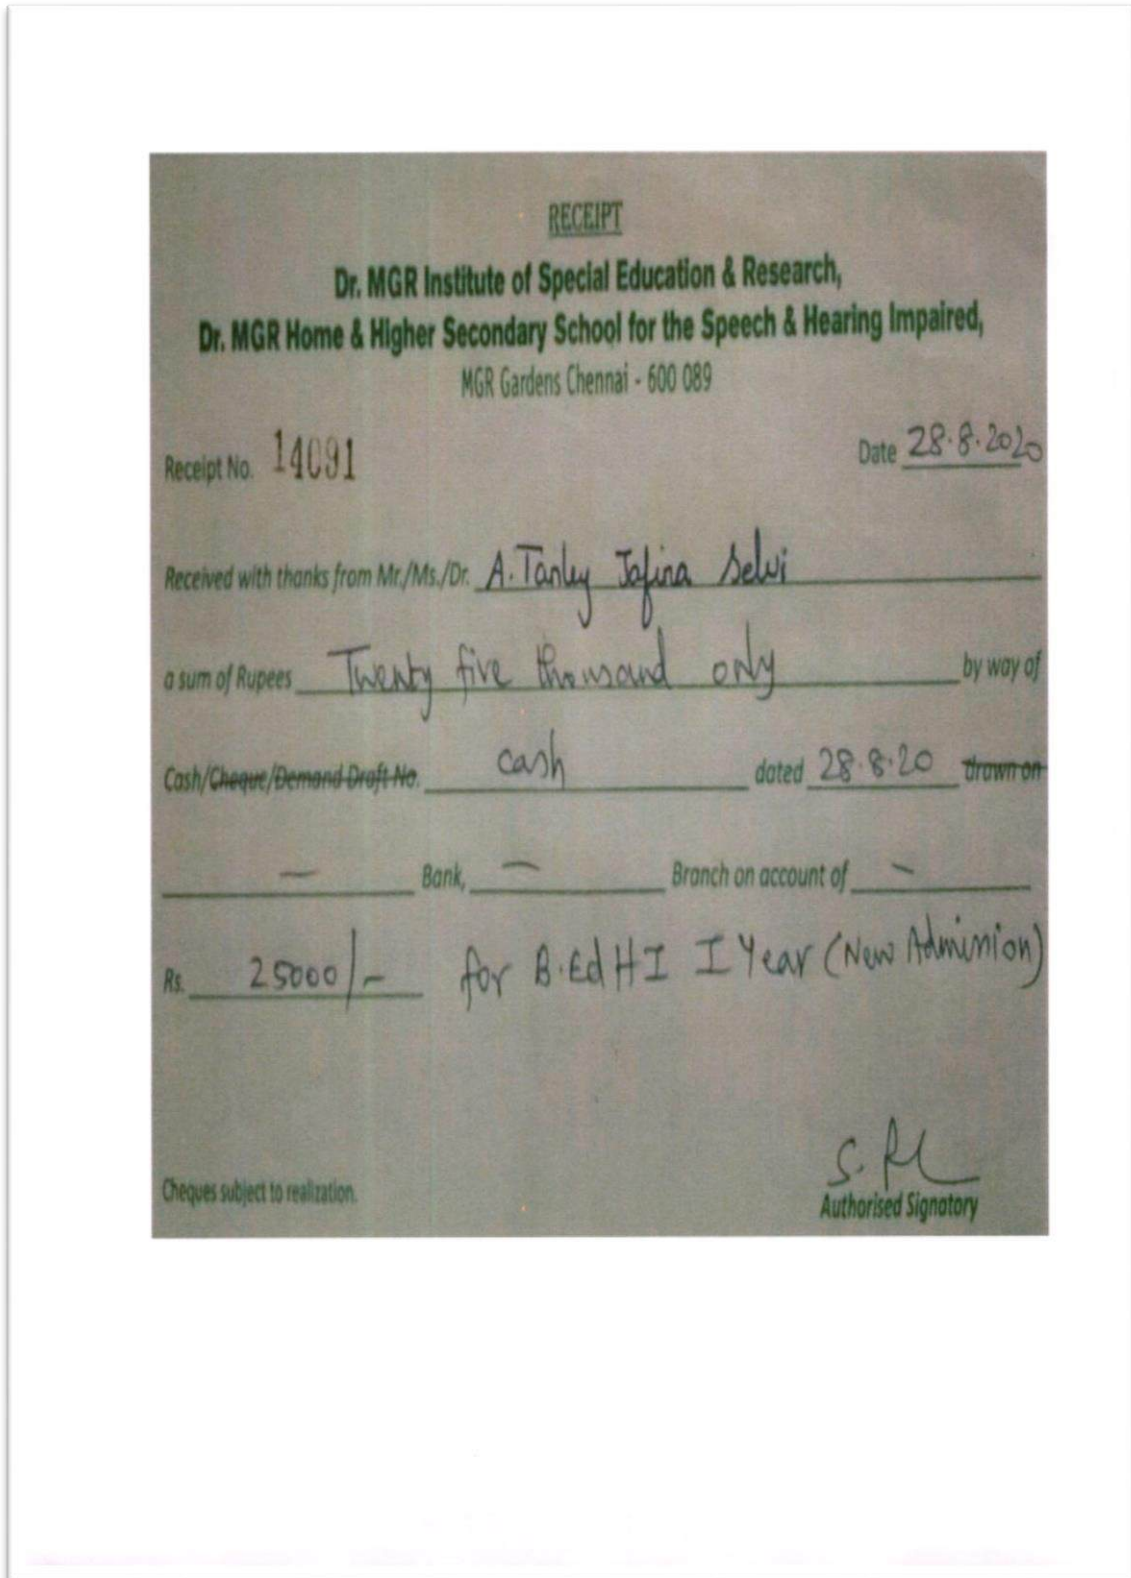 RECEIPT
Dr. MGR Institute of Special Education & Research,
Dr. MGR Home & Higher Secondary School for the Speech & Hearing Impaired,
MGR Gardens Chennai - 600 089
Receipt No. 14091 Date 28.8.2020
Received with thanks from Mr./Ms./Dr. A. Tanley Jafina Selvi
a sum of Rupees Twenty five thousand only by way of
Cash/Cheque/Demand Draft No. cash dated 28.8.20 drawn on
— Bank, — Branch on account of —
Rs. 25000/- for B.Ed HI I Year (New Admission)
Cheques subject to realization.
Authorised Signatory